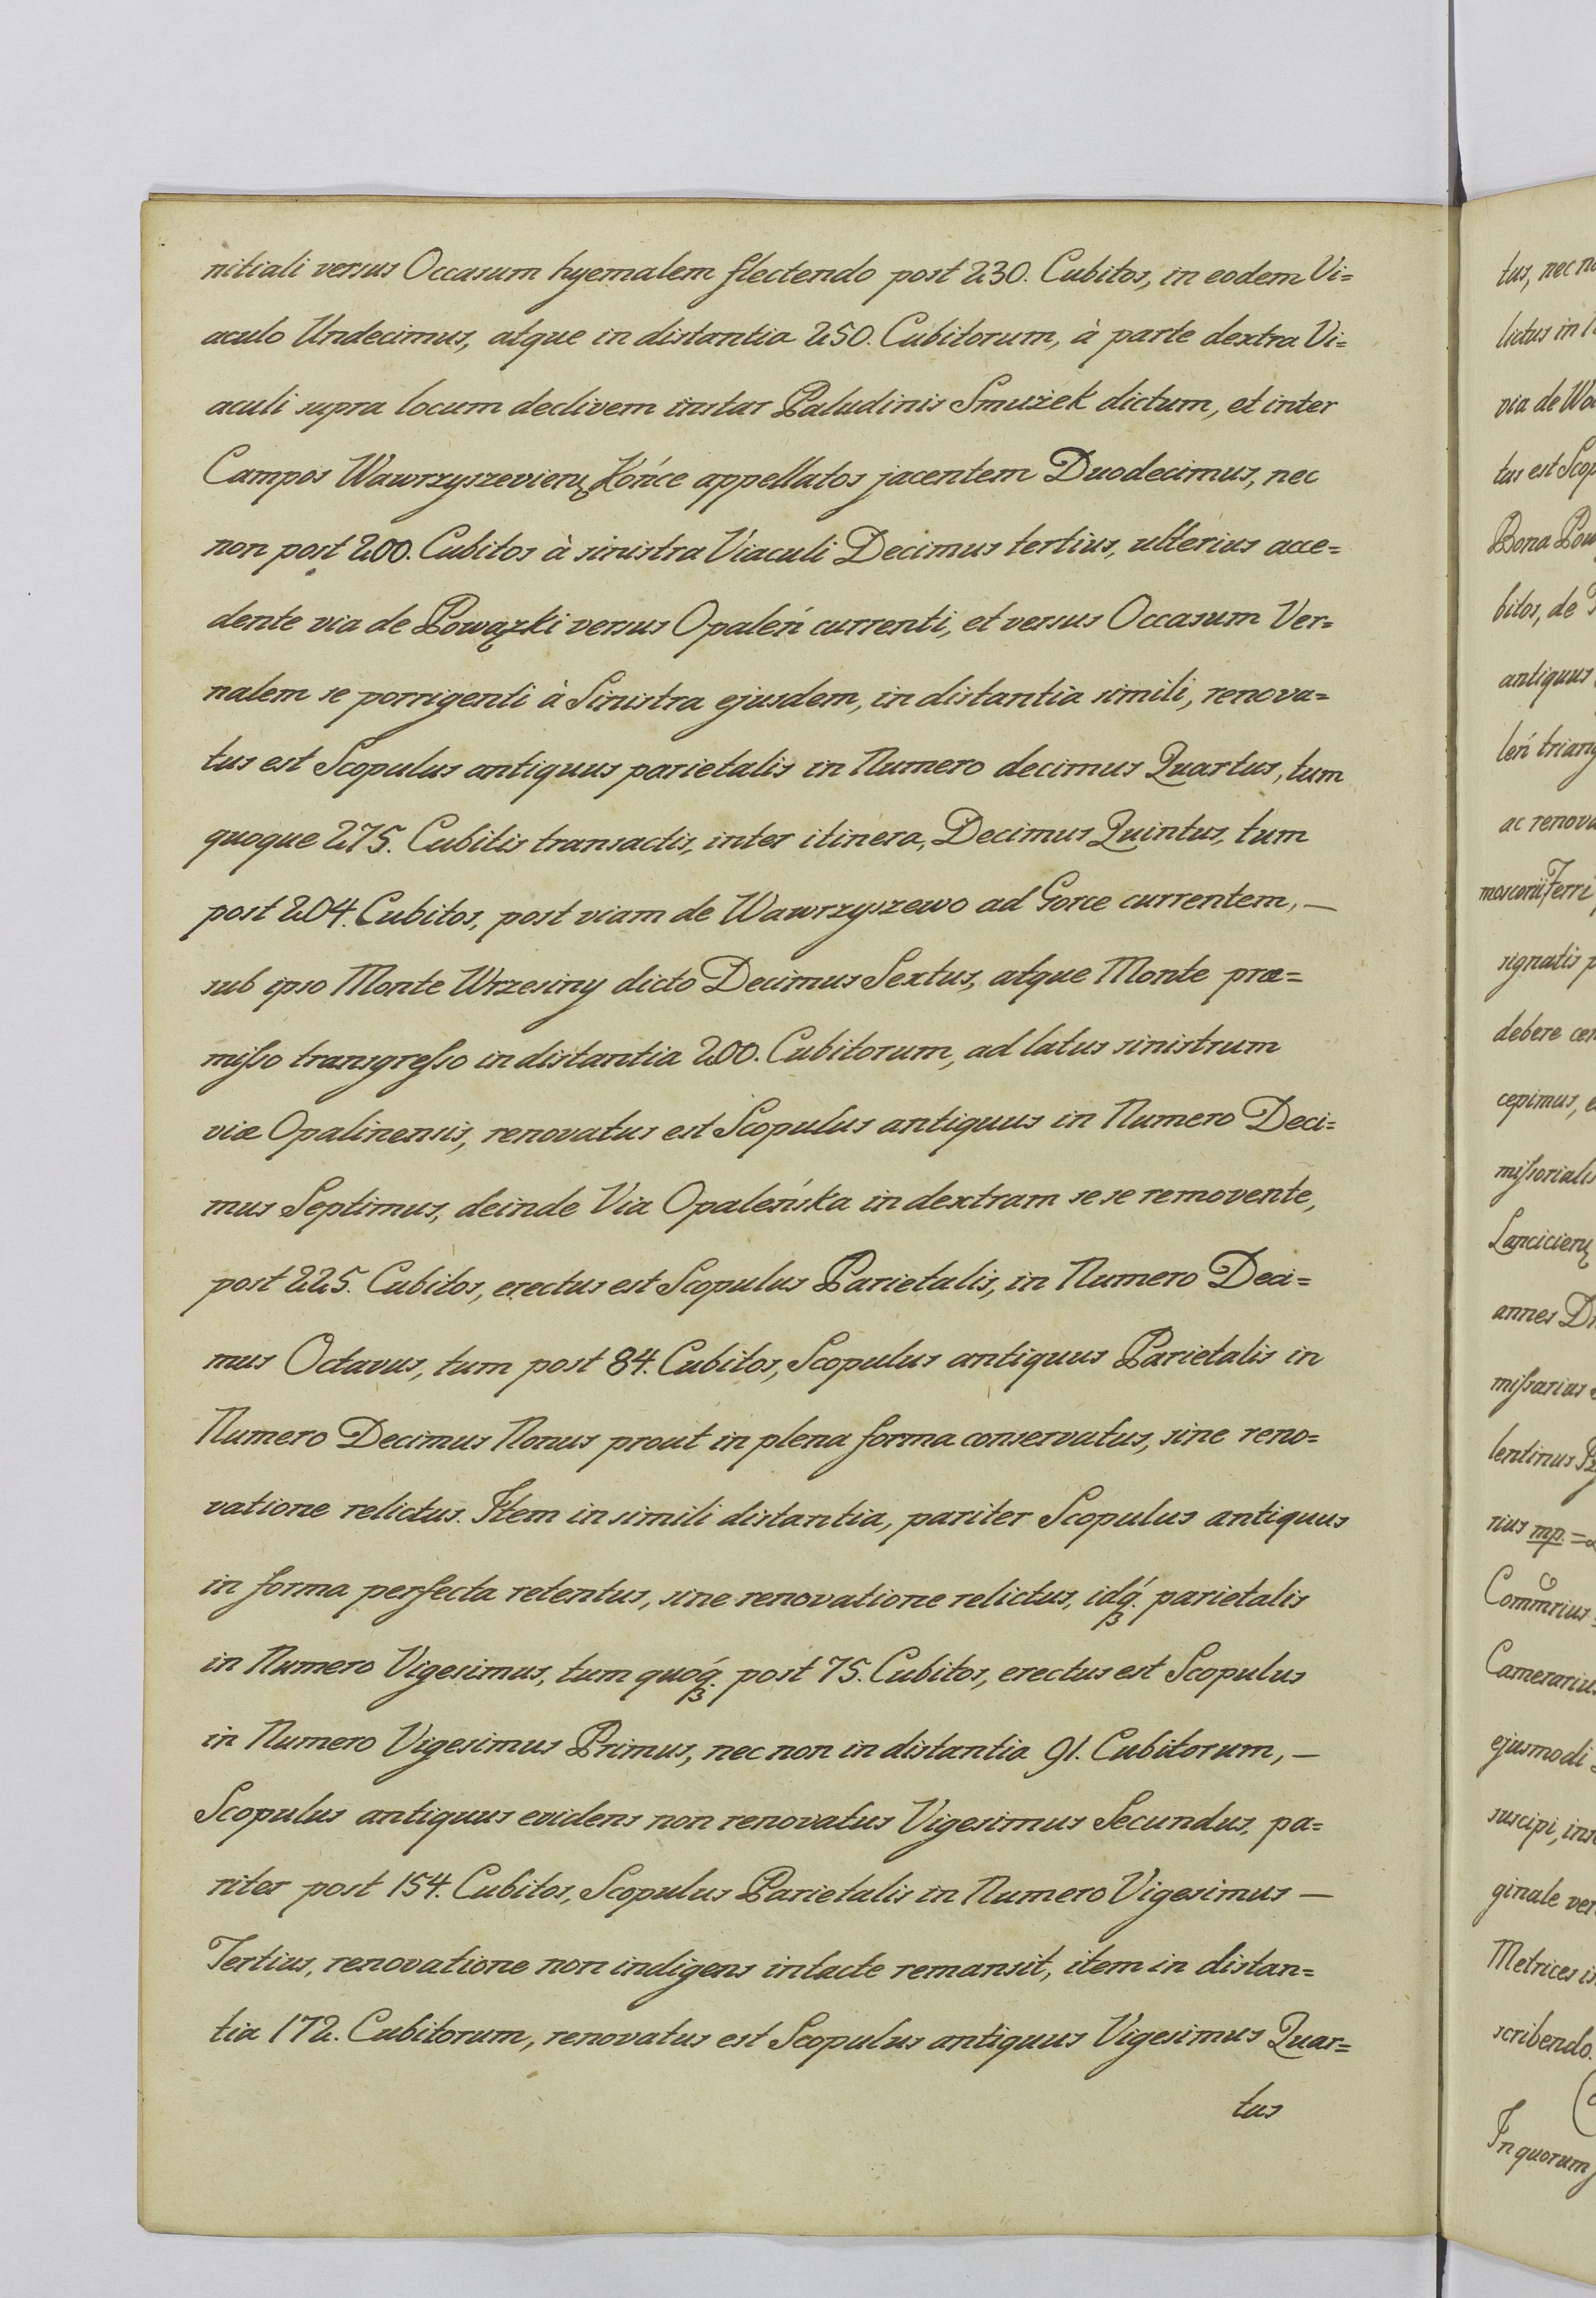 nitiali versus Occasum hyemalem flectendo post 230. Cubitos, in eodem Vi=
aculo Undecimus, atque in distantia 250. Cubitorum, à parte dextra Vi=
aculi supra locum declivem instar Paludinis Smużek dictum, et inter
Campos Wawrzyszevien̨ Kończe appellatos jacentem Duodecimus, nec
non post 200. Cubitos à sinistra Viaculi Decimus tertius, ulterius acce=
dente via de Powązki versus Opaleń currenti, et versus Occasum Ver=
nalem se porrigenti à Sinistra ejusdem, in distantia simili, renova=
tus est Scopulus antiquus parietalis in Numero decimus Quartus, tum
quoque 275. Cubitis transactis, inter itinera, Decimus Quintus, tum
post 204. Cubitos, post viam de Wawrzyszewo ad Gorce currentem, —
sub ipso Monte Wrzesiny dicto Decimus Sextus, atque Monte præ=
miſso transgreſso in distantia 200. Cubitorum, ad latus sinistrum
viæ Opalinensis, renovatus est Scopulus antiquus in Numero Deci=
mus Septimus, deinde Via Opaleńska in dextram se se removente,
post 225. Cubitos, erectus est Scopulus Parietalis, in Numero Deci=
mus Octavus, tum post 84. Cubitos, Scopulus antiquus Parietalis in
Numero Decimus Nonus prout in plena forma conservatus, sine reno=
vatione relictus. Item in simili distantia, pariter Scopulus antiquus
in forma perfecta retentus, sine renovatione relictus, idq́ꝫ. parietalis
in Numero Vigesimus, tum quoq́ꝫ. post 75. Cubitos, erectus est Scopulus
in Numero Vigesimus Primus, nec non in distantia 91. Cubitorum, —
Scopulus antiquus evidens non renovatus Vigesimus Secundus, pa=
riter post 154. Cubitos, Scopulus Parietalis in Numero Vigesimus —
Tertius, renovatione non indigens intacte remansit, item in distan=
tia 172. Cubitorum, renovatus est Scopulus antiquus Vigesimus Quar=
tus
tus, nec
via de
tus est
Bona
bitos, de
antiquus
ac
signatis
debere
cepimus,
annes
lentinus
rius mp. =
Camerarius
ejusmodi
suscipi,
ginale
Metrices
scribendo.
In quorum